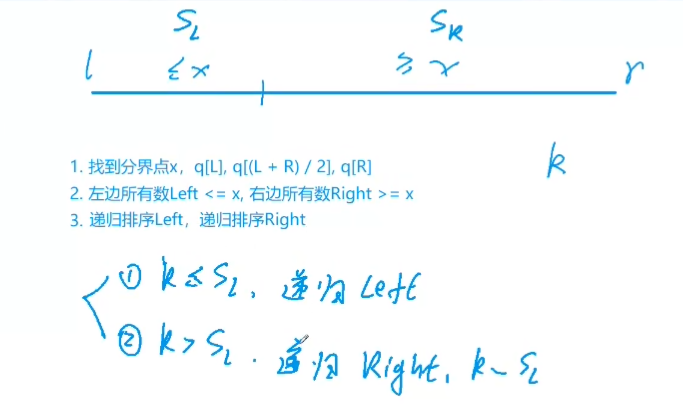 S_L S_R
l ≤ x ≥ x r
k
1. 找到分界点x，q[L], q[(L + R) / 2], q[R]
2. 左边所有数Left <= x, 右边所有数Right >= x
3. 递归排序Left，递归排序Right
① k ≤ S_L, 递归 Left
② k > S_L. 递归 Right, k - S_L